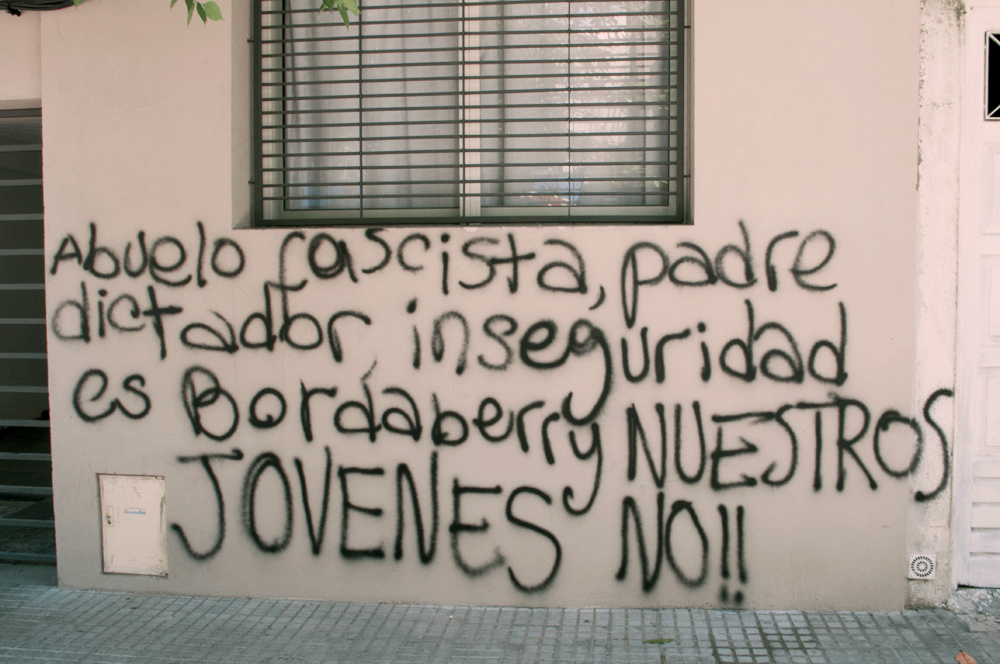 Abuelo fascista, padre
dictador, inseguridad
es Bordaberry NUESTROS
JOVENES NO!!